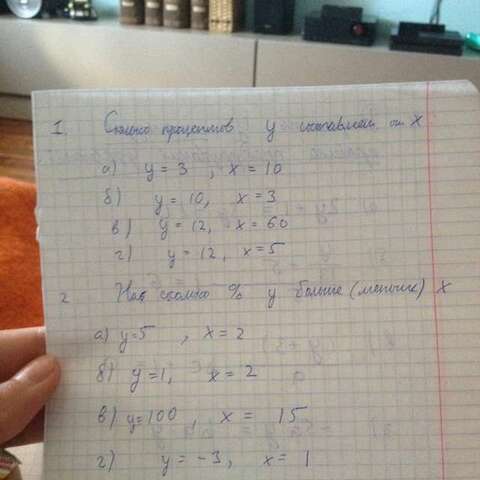 1. Сколько процентов y составляет от x
а) y = 3, x = 10
б) y = 10, x = 3
в) y = 12, x = 60
г) y = 12, x = 5
2 На сколько % y больше (меньше) x
а) y = 5, x = 2
б) y = 1, x = 2
в) y = 100, x = 15
г) y = -3, x = 1